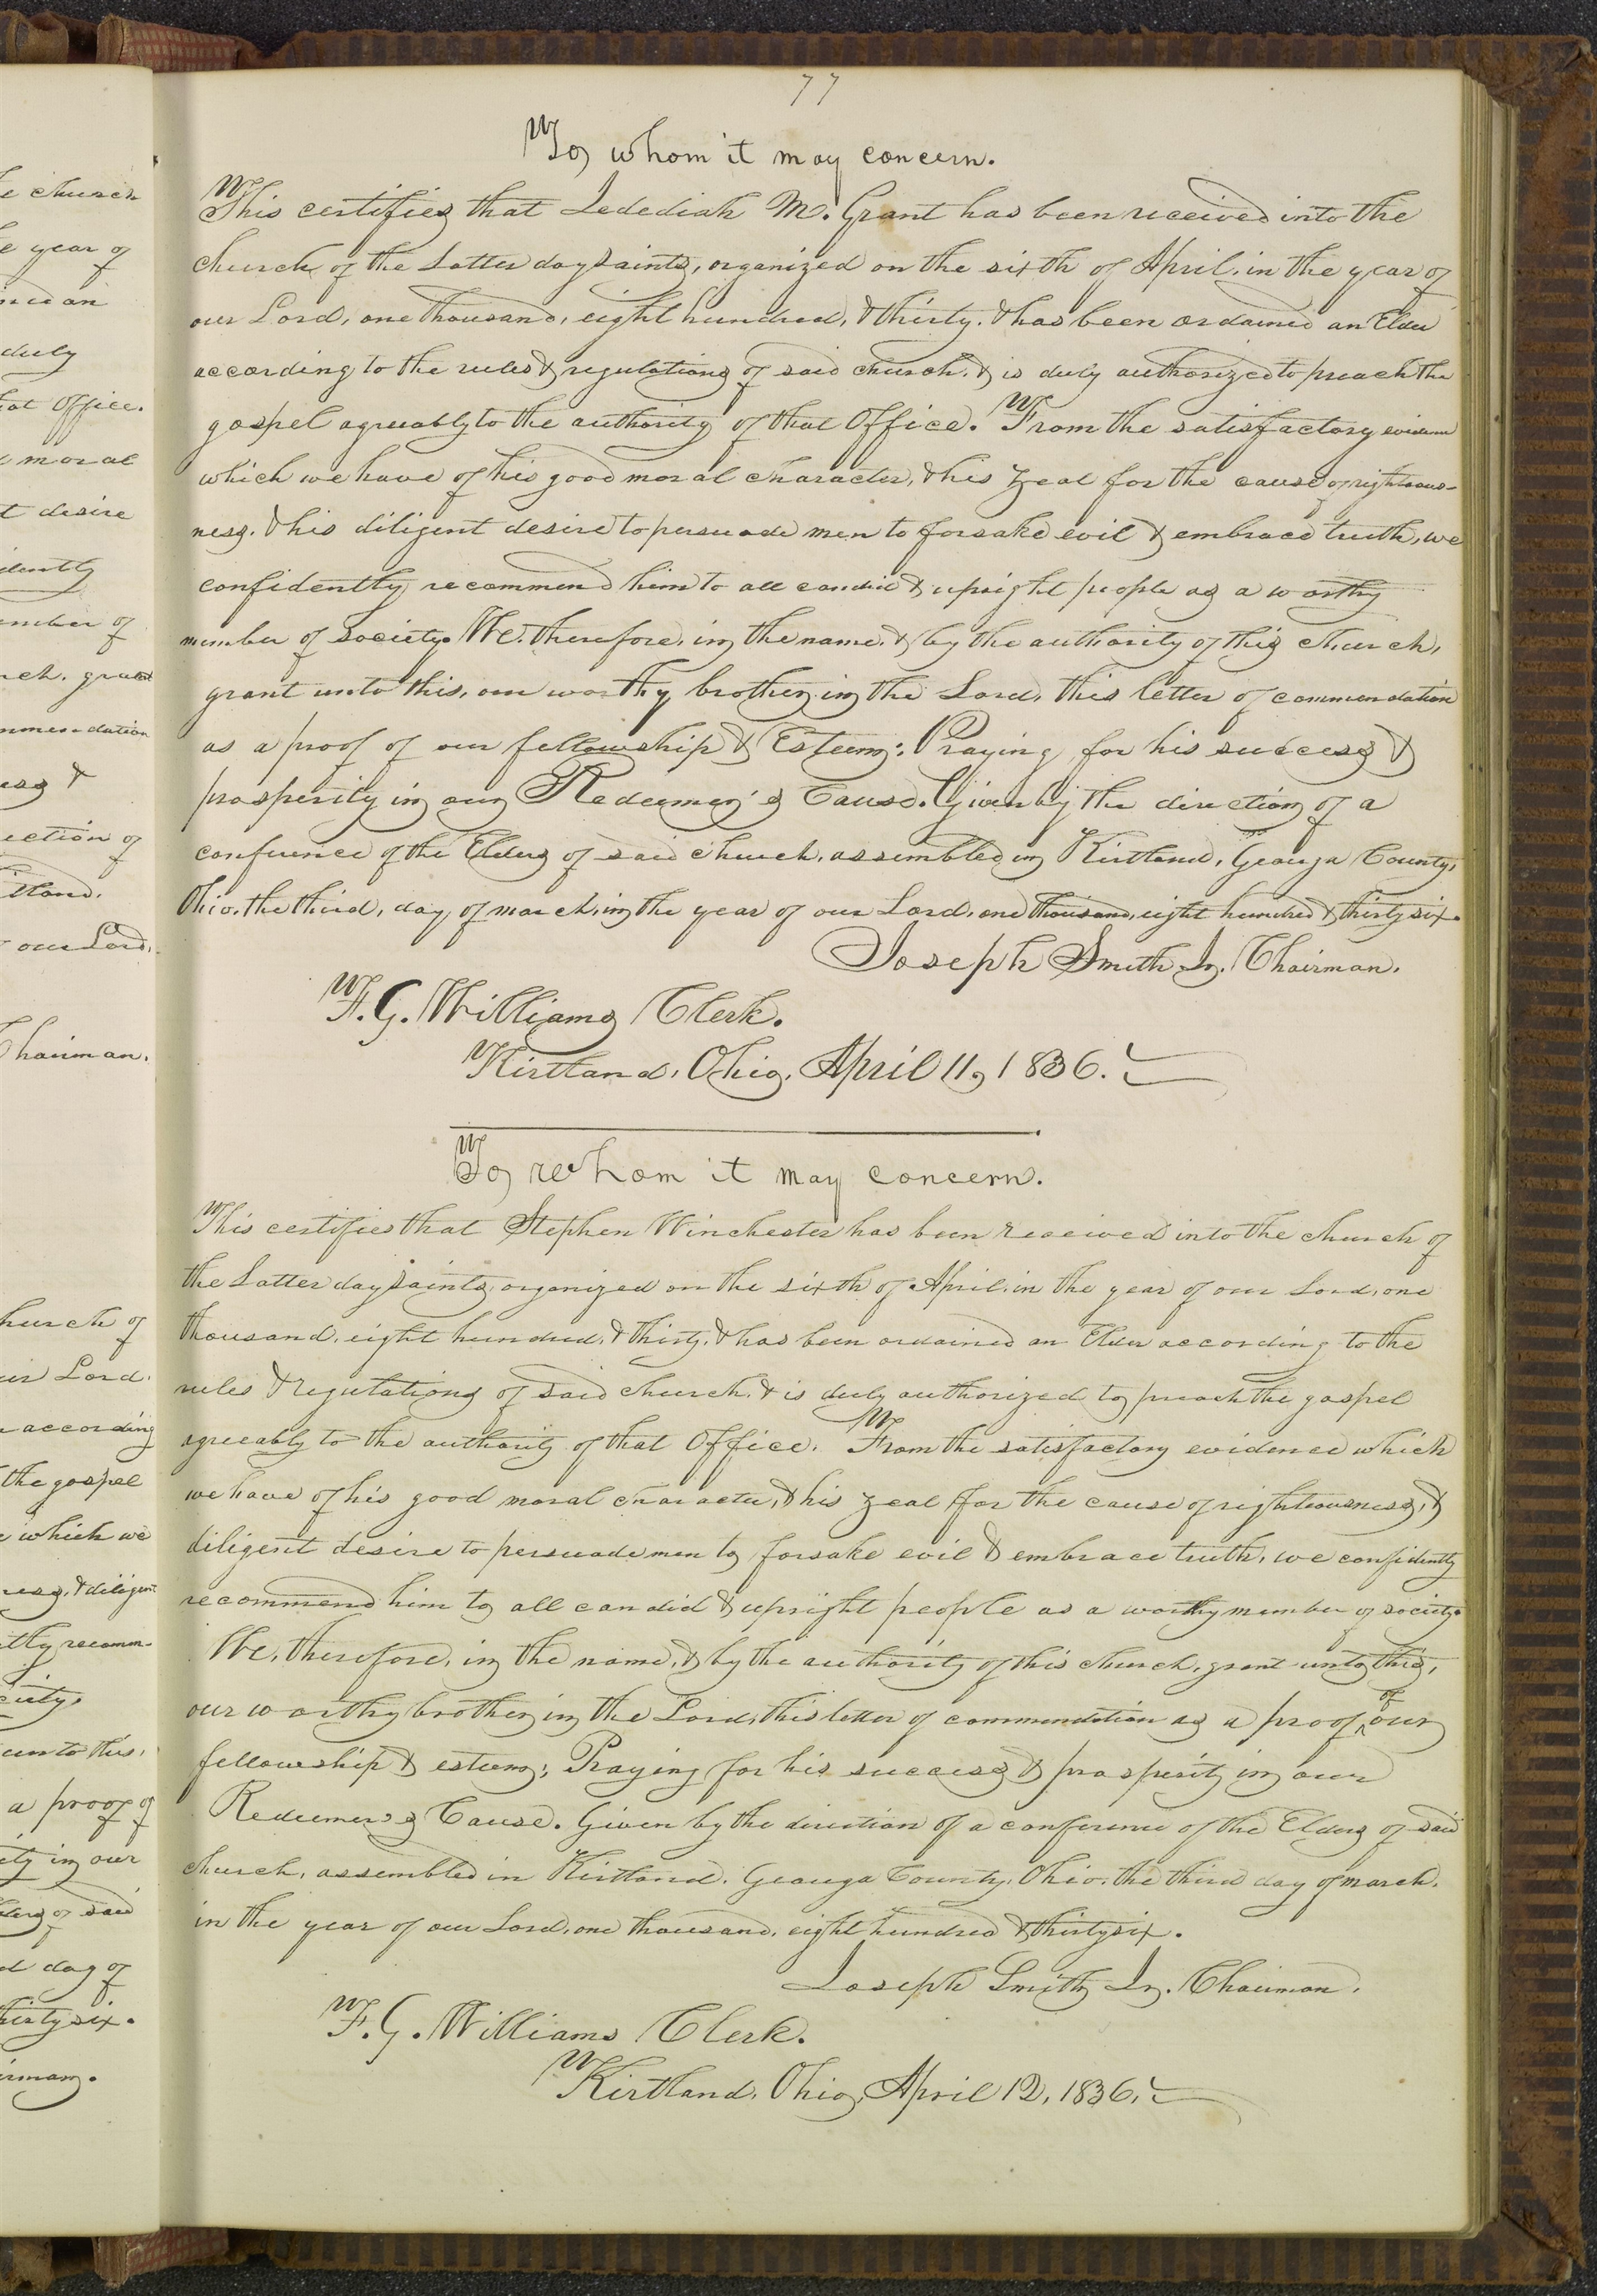 e church
e year of
duly
hat Office.
moral
t desire
idently
ember of
rch, grant
mmendation
ess &
ection of
irtland,
our Lord,
Chairman.
hurch of
ur Lord,
according
the gospel
which we
ness, & diligent
tly recomm-
ciety.
unto this,
a proof of
ity in our
lders of said
d day of
thirty six.
irman.
77
To whom it may concern.
This certifies that Jedediah M. Grant has been received into the
church of the Latter day saints, organized on the sixth of April, in the year of
our Lord, one thousand, eight hundred, & thirty. & has been ordained an Elder
according to the rules & regulations of said church, & is duly authorized to preach the
gospel agreeably to the authority of that Office. From the satisfactory evidence
which we have of his good moral character, & his zeal for the cause of righteous-
ness, & his diligent desire to persuade men to forsake evil & embrace truth, we
confidently recommend him to all candid & upright people as a worthy
member of society. We, therefore, in the name, & by the authority of this church,
grant unto this, our worthy brother in the Lord, this letter of commendation
as a proof of our fellowship & Esteem: Praying for his success &
prosperity in our Redeemer's Cause. Given by the direction of a
conference of the Elders of said church, assembled in Kirtland, Geauga County,
Ohio, the third, day, of march, in the year of our Lord, one thousand, eight hundred & thirty six.
Joseph Smith Jr. Chairman.
F. G. Williams Clerk.
Kirtland, Ohio, April 11, 1836.
To whom it may concern.
This certifies that Stephen Winchester has been received into the church of
the Latter day saints, organized on the sixth of April, in the year of our Lord, one
thousand, eight hundred, & thirty, & has been ordained an Elder according to the
rules & regulations of said church, & is duly authorized to preach the gospel
agreeably to the authority of that Office. From the satisfactory evidence which
we have of his good moral character, & his zeal for the cause of righteousness, &
diligent desire to persuade men to forsake evil & embrace truth, we confidently
recommend him to all candid & upright people as a worthy member of society.
We, therefore, in the name, & by the authority of this church, grant unto this,
our worthy brother in the Lord, this letter of commendation as a proof of our
fellowship & esteem; Praying for his success & prosperity in our
Redeemer's Cause. Given by the direction of a conference of the Elders of said
church, assembled in Kirtland, Geauga County, Ohio, the third day of march,
in the year of our Lord, one thousand, eight hundred & thirty six.
Joseph Smith Jr. Chairman.
F. G. Williams Clerk.
Kirtland, Ohio, April 12, 1836.